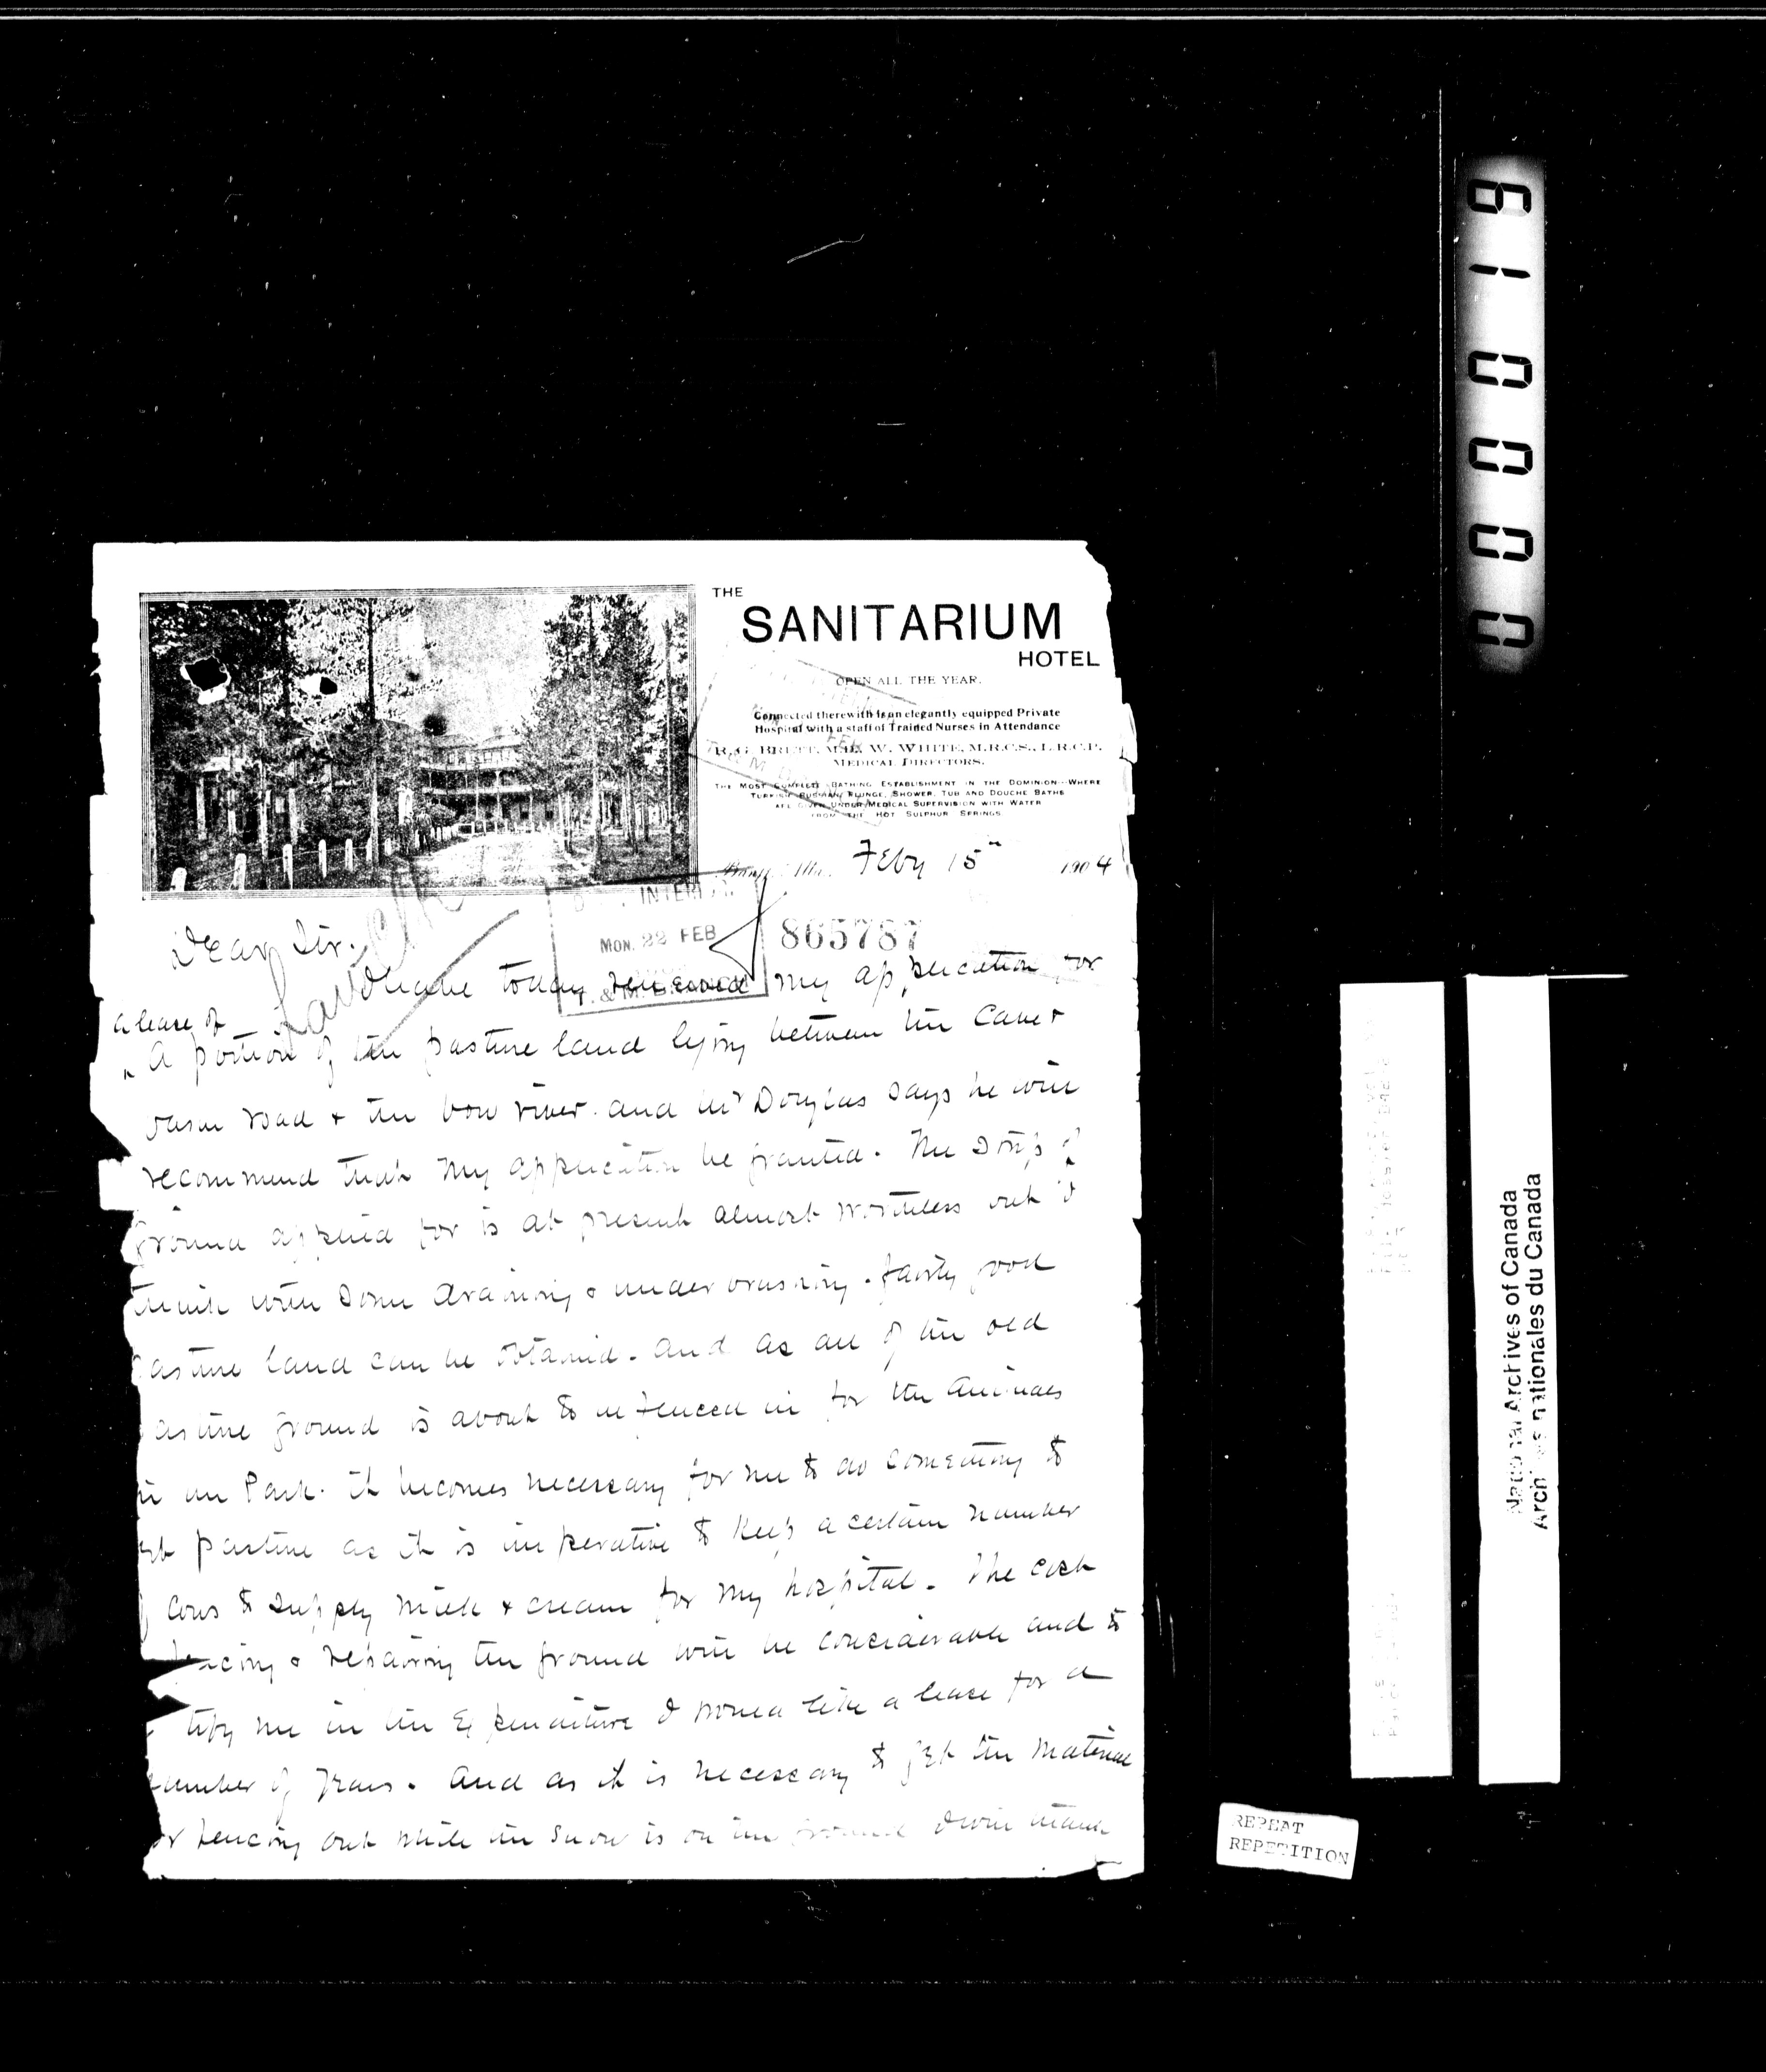 THE
SANITARIUM
HOTEL
OPEN ALL THE YEAR.
Connected therewith is an elegantly equipped Private
Hospital with a staff of Trained Nurses in Attendance
R. G. BRETT, M.D. W. WHITE, M.R.C.S., L.R.C.P.
MEDICAL DIRECTORS.
THE MOST COMPLETE BATHING ESTABLISHMENT IN THE DOMINION WHERE
TURKISH RUSSIAN, PLUNGE, SHOWER, TUB AND DOUCHE BATHS
ARE GIVEN UNDER MEDICAL SUPERVISION WITH WATER
FROM THE HOT SULPHUR SPRINGS
Banff, Alta. Feby 15th 1904
INTERIOR
MON. 22 FEB
T. & M. BRANCH
865787
Dear Sir.
I have today renewed my application for
a lease of
a portion of the pasture land lying between the Cave &
Basin road & the bow river. and Mr Douglas says he will
recommend that my application be granted. The strip of
ground applied for is at present almost worthless but I
think with some draining & underbrushing. fairly good
pasture land can be obtained. And as all of the old
asture ground is about to be fenced in for the animals
in the Park. it becomes necessary for me to do something to
get pasture as it is imperative to keep a certain number
of cows to supply milk & cream for my hospital. The cost
fencing & repairing the ground will be considerable and to
tify me in the Expenditure I would like a lease for a
number of years. And as it is necessary to get the material
for fencing out while the snow is on the ground I will thank
0000019
National Archives of Canada
Archives nationales du Canada
REPEAT
REPETITION